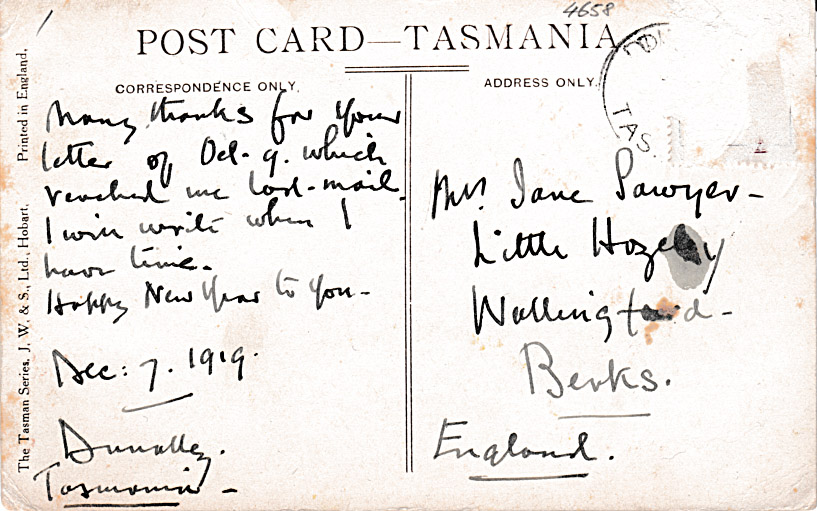 4658
POST CARD—TASMANIA
CORRESPONDENCE ONLY.
Many thanks for your
letter of Oct. 9. which
reached me last-mail.
I will write when I
have time.
Happy New Year to you -
Dec: 7. 1919.
Dunalley.
Tasmania -
ADDRESS ONLY.
TAS.
Mrs. Jane Sawyer -
Little
Wallingford -
Berks.
England.
The Tasman Series. J. W. & S., Ltd., Hobart. Printed in England.